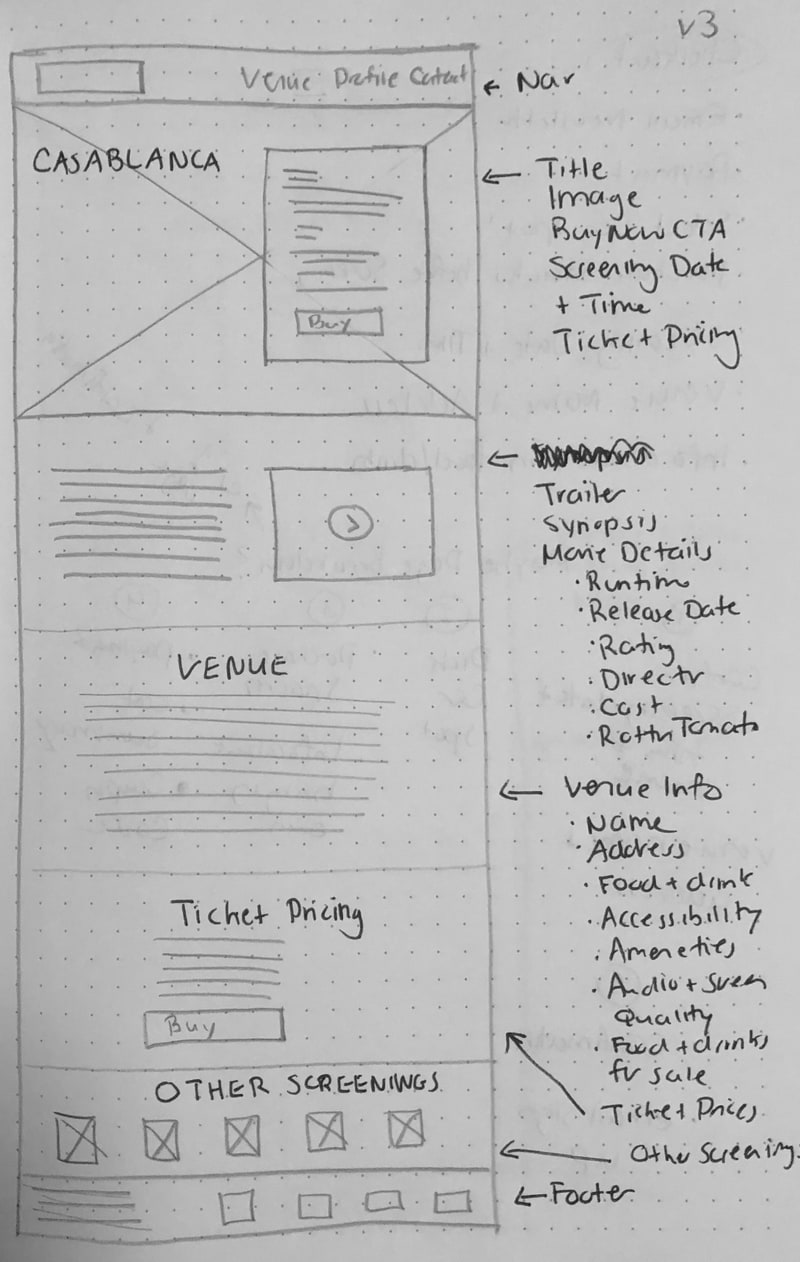 v3
Venue Profile Contact
← Nar
CASABLANCA
← Title
Image
Buy Now CTA
Screening Date
+ Time
Ticket Pricing
Buy
Trailer
Synopsis
Movie Details
· Runtime
· Release Date
· Rating
· Directr
· Cast
· Rottn Tomato
VENUE
← Venue Info
· Name
· Address
· Food + drink
· Accessibility
· Ameneties
· Audio + Screen
Quality
· Food + drinks
fr sale
Ticket Pricing
Buy
Ticket Prices
OTHER SCREENINGS
← Other Screenings
← Footer